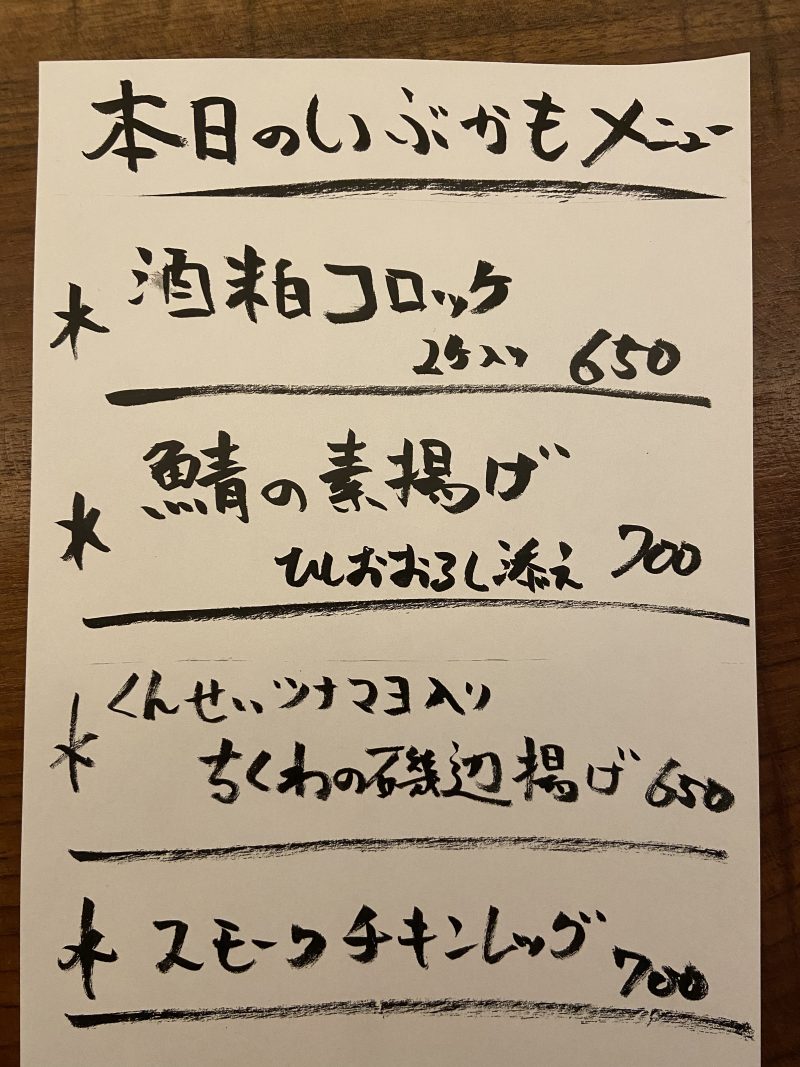 本日のいぶかもメニュー
酒粕コロッケ
2ケ入り 650
鯖の素揚げ
ひしおおろし添え 700
くんせいツナマヨ入り
ちくわの磯辺揚げ 650
スモークチキンレッグ 700